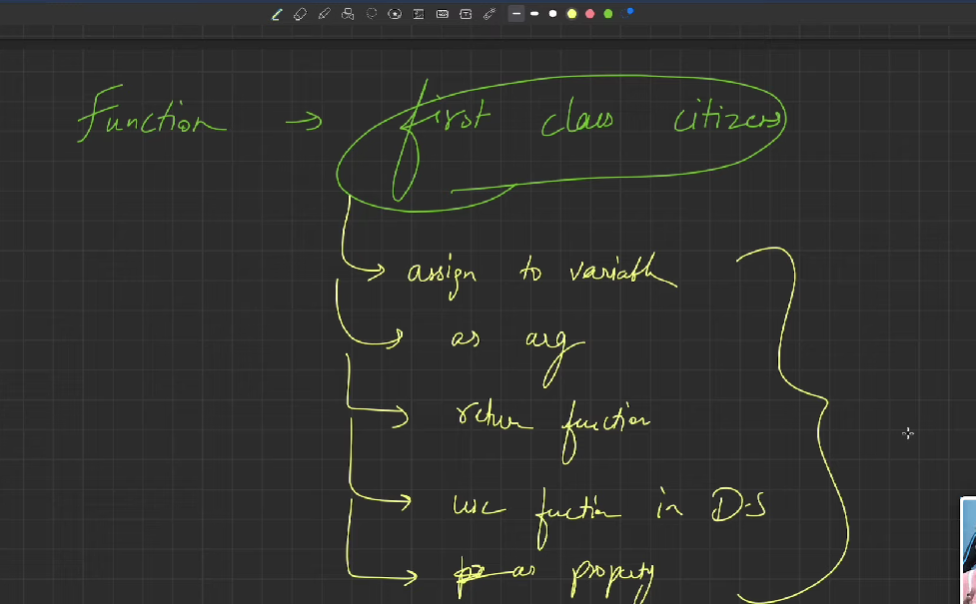 Function → first class citizens
→ assign to variable
→ as arg
→ return function
→ use function in D.S
→ as property